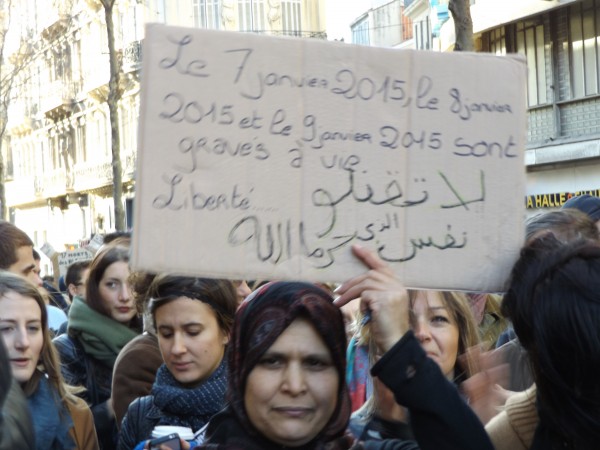 Le 7 janvier 2015, le 8 janvier
2015 et le 9 janvier 2015 sont
graves à vie
Liberté.... لا تقتلو
نفس الذي حرما الله
LA HALLE